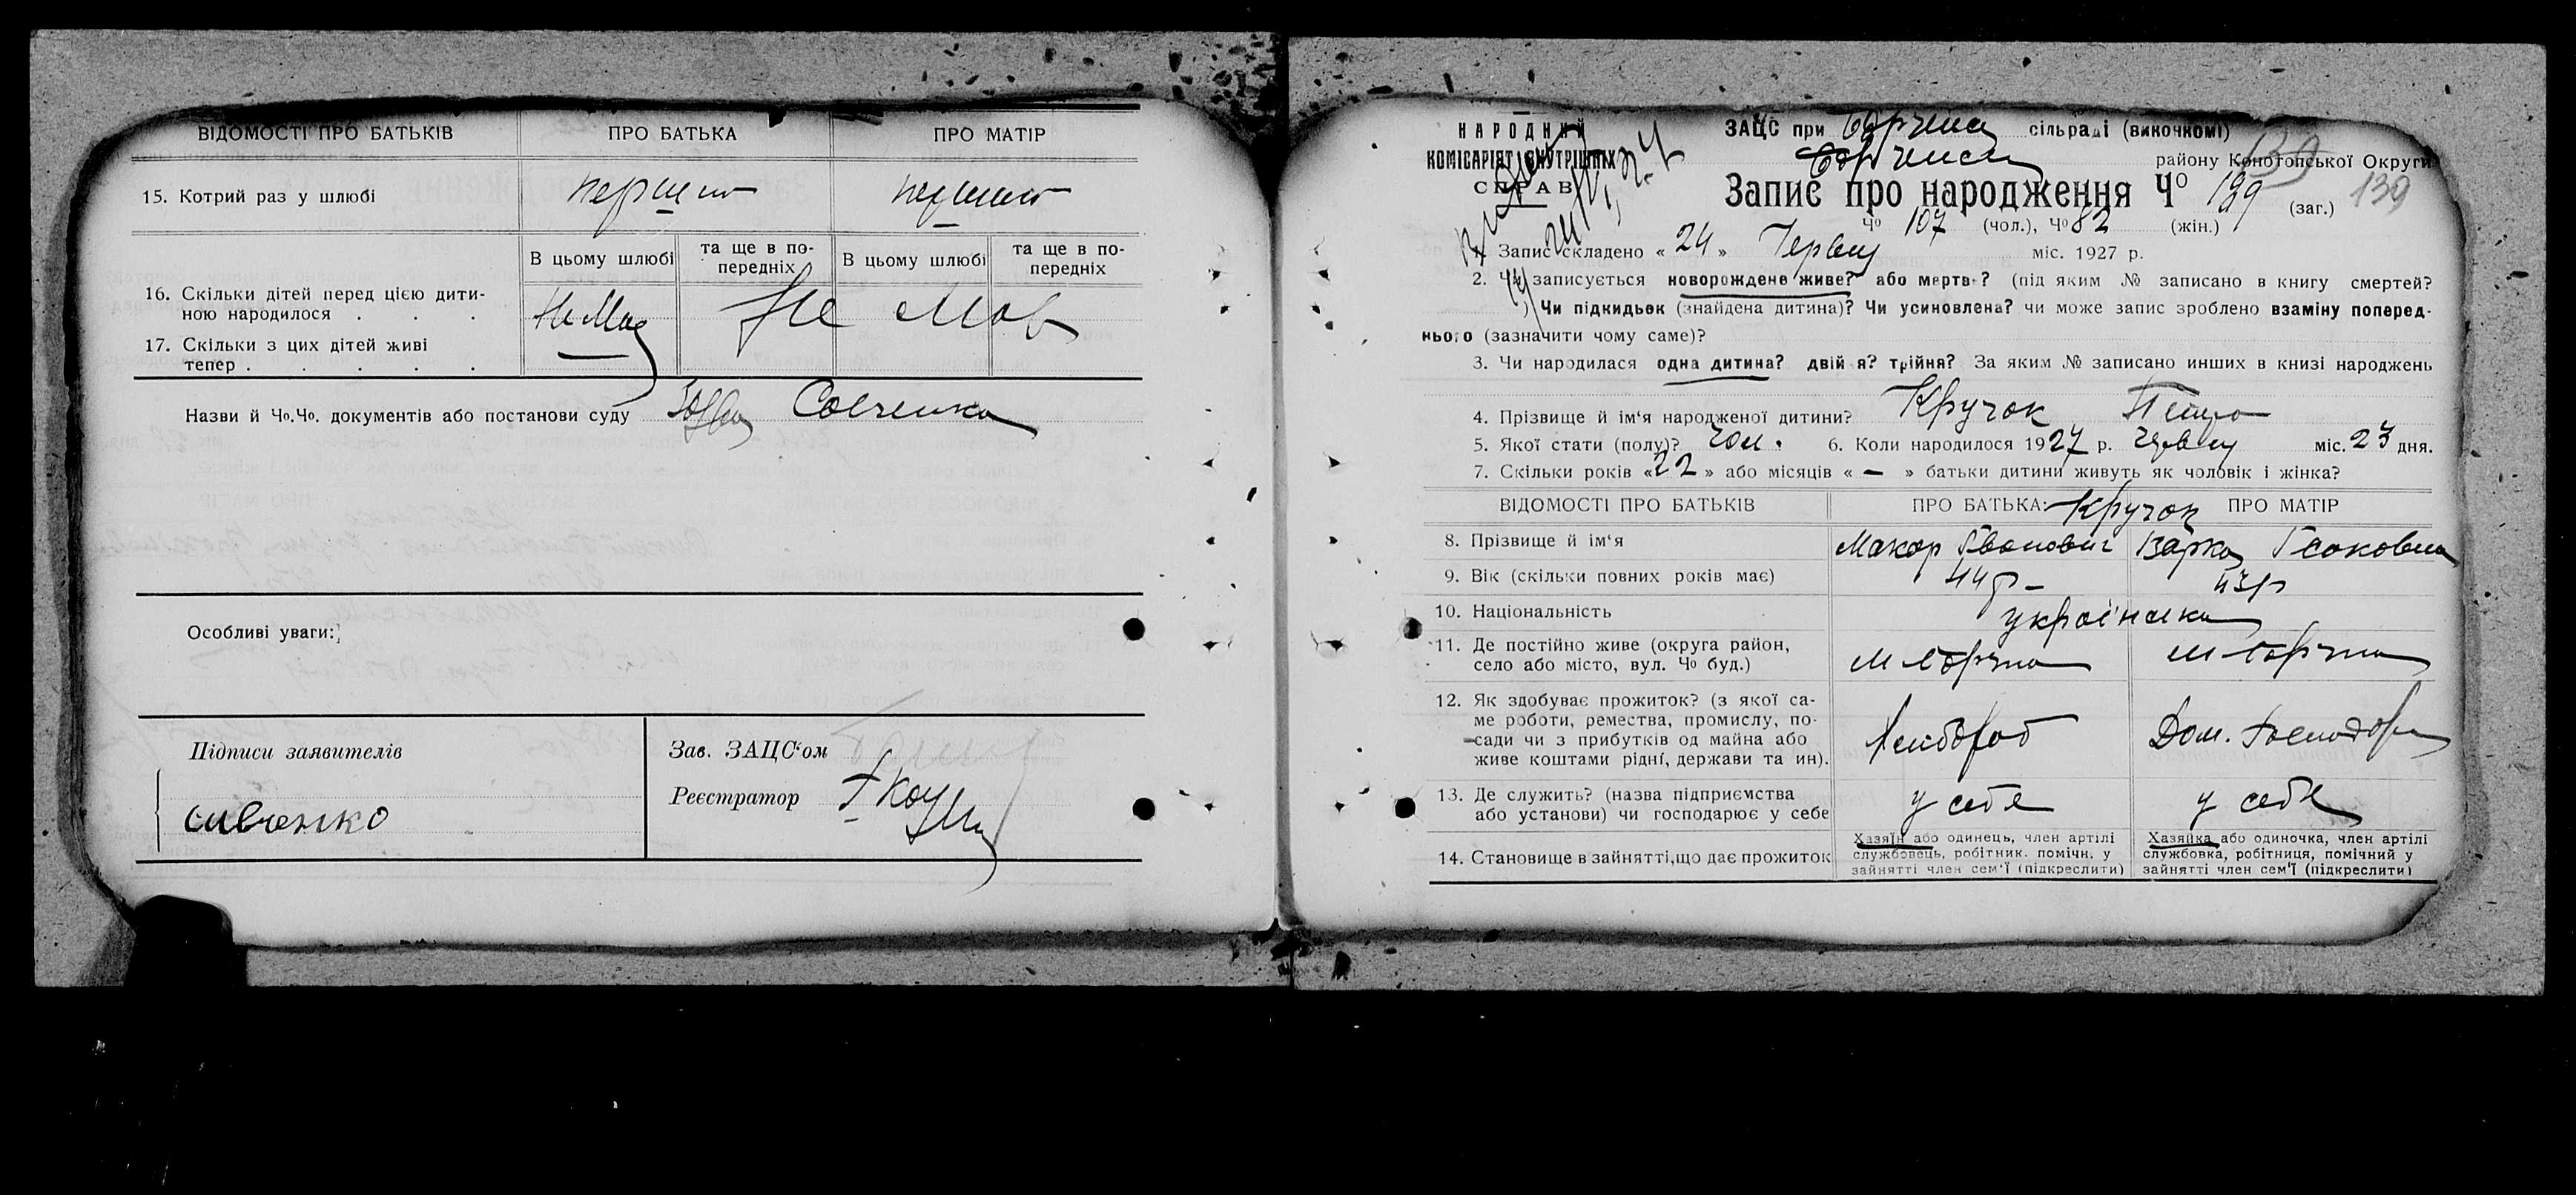 ВІДОМОСТІ ПРО БАТЬКІВ ПРО БАТЬКА ПРО МАТІР
15. Котрий раз у шлюбі
В цьому шлюбі та ще в по-передніх В цьому шлюбі та ще в по-передніх
16. Скільки дітей перед цією дити-
ною народилося . . . Не має Не мав
17. Скільки з цих дітей живі
тепер . . . . .
Назви й Чо.Чо. документів або постанови суду Савченка
Особливі уваги:
Підписи заявителів Зав. ЗАЦС‘ом
савченко Реєстратор
НАРОДНИЙ
КОМІСАРІЯТ ВНУТРІШНІХ
СПРАВ
ЗАЦС при сільраді (викочкомі)
району Конотопської Округи
Запис про народження Чо 189 (заг.) 139
Чо 107 (чол.), Чо 82 (жін.)
Запис складено « 24 » Червця міс. 1927 р.
2. Чи записується новорождене живе? або мертве? (під яким № записано в книгу смертей?
) Чи підкидьок (знайдена дитина)? Чи усиновлена? чи може запис зроблено взаміну поперед-
нього (зазначити чому саме)?
3. Чи народилася одна дитина? двій я? трійня? За яким № записано инших в книзі народжень
4. Прізвище й ім‘я народженої дитини? Кручок Петро
5. Якої стати (полу)? чол. 6. Коли народилося 1927 р. червця міс. 23 дня.
7. Скільки років «22» або місяців « — » батьки дитини живуть як чоловік і жінка?
ВІДОМОСТІ ПРО БАТЬКІВ ПРО БАТЬКА: Кручок ПРО МАТІР
8. Прізвище й ім‘я Макар Іванович Варка Ісаковна
9. Вік (скільки повних років має) 44 р 43 р
10. Національність українська
11. Де постійно живе (округа район,
село або місто, вул. Чо буд.) м Борзна м Борзна
12. Як здобуває прожиток? (з якої са-
ме роботи, ремества, промислу, по-
сади чи з прибутків од майна або
живе коштами рідні, держави та ин). Хлібороб Дом. Господар
13. Де служить? (назва підприємства
або установи) чи господарює у себе у себе у себе
14. Становище в зайнятті, що дає прожиток
Хазяїн або одинець, член артілі
службовець, робітник. помічн. у
зайнятті член сем‘ї (підкреслити)
Хазяйка або одиночка, член артілі
службовка, робітниця, помічний у
зайнятті член сем‘ї (підкреслити)